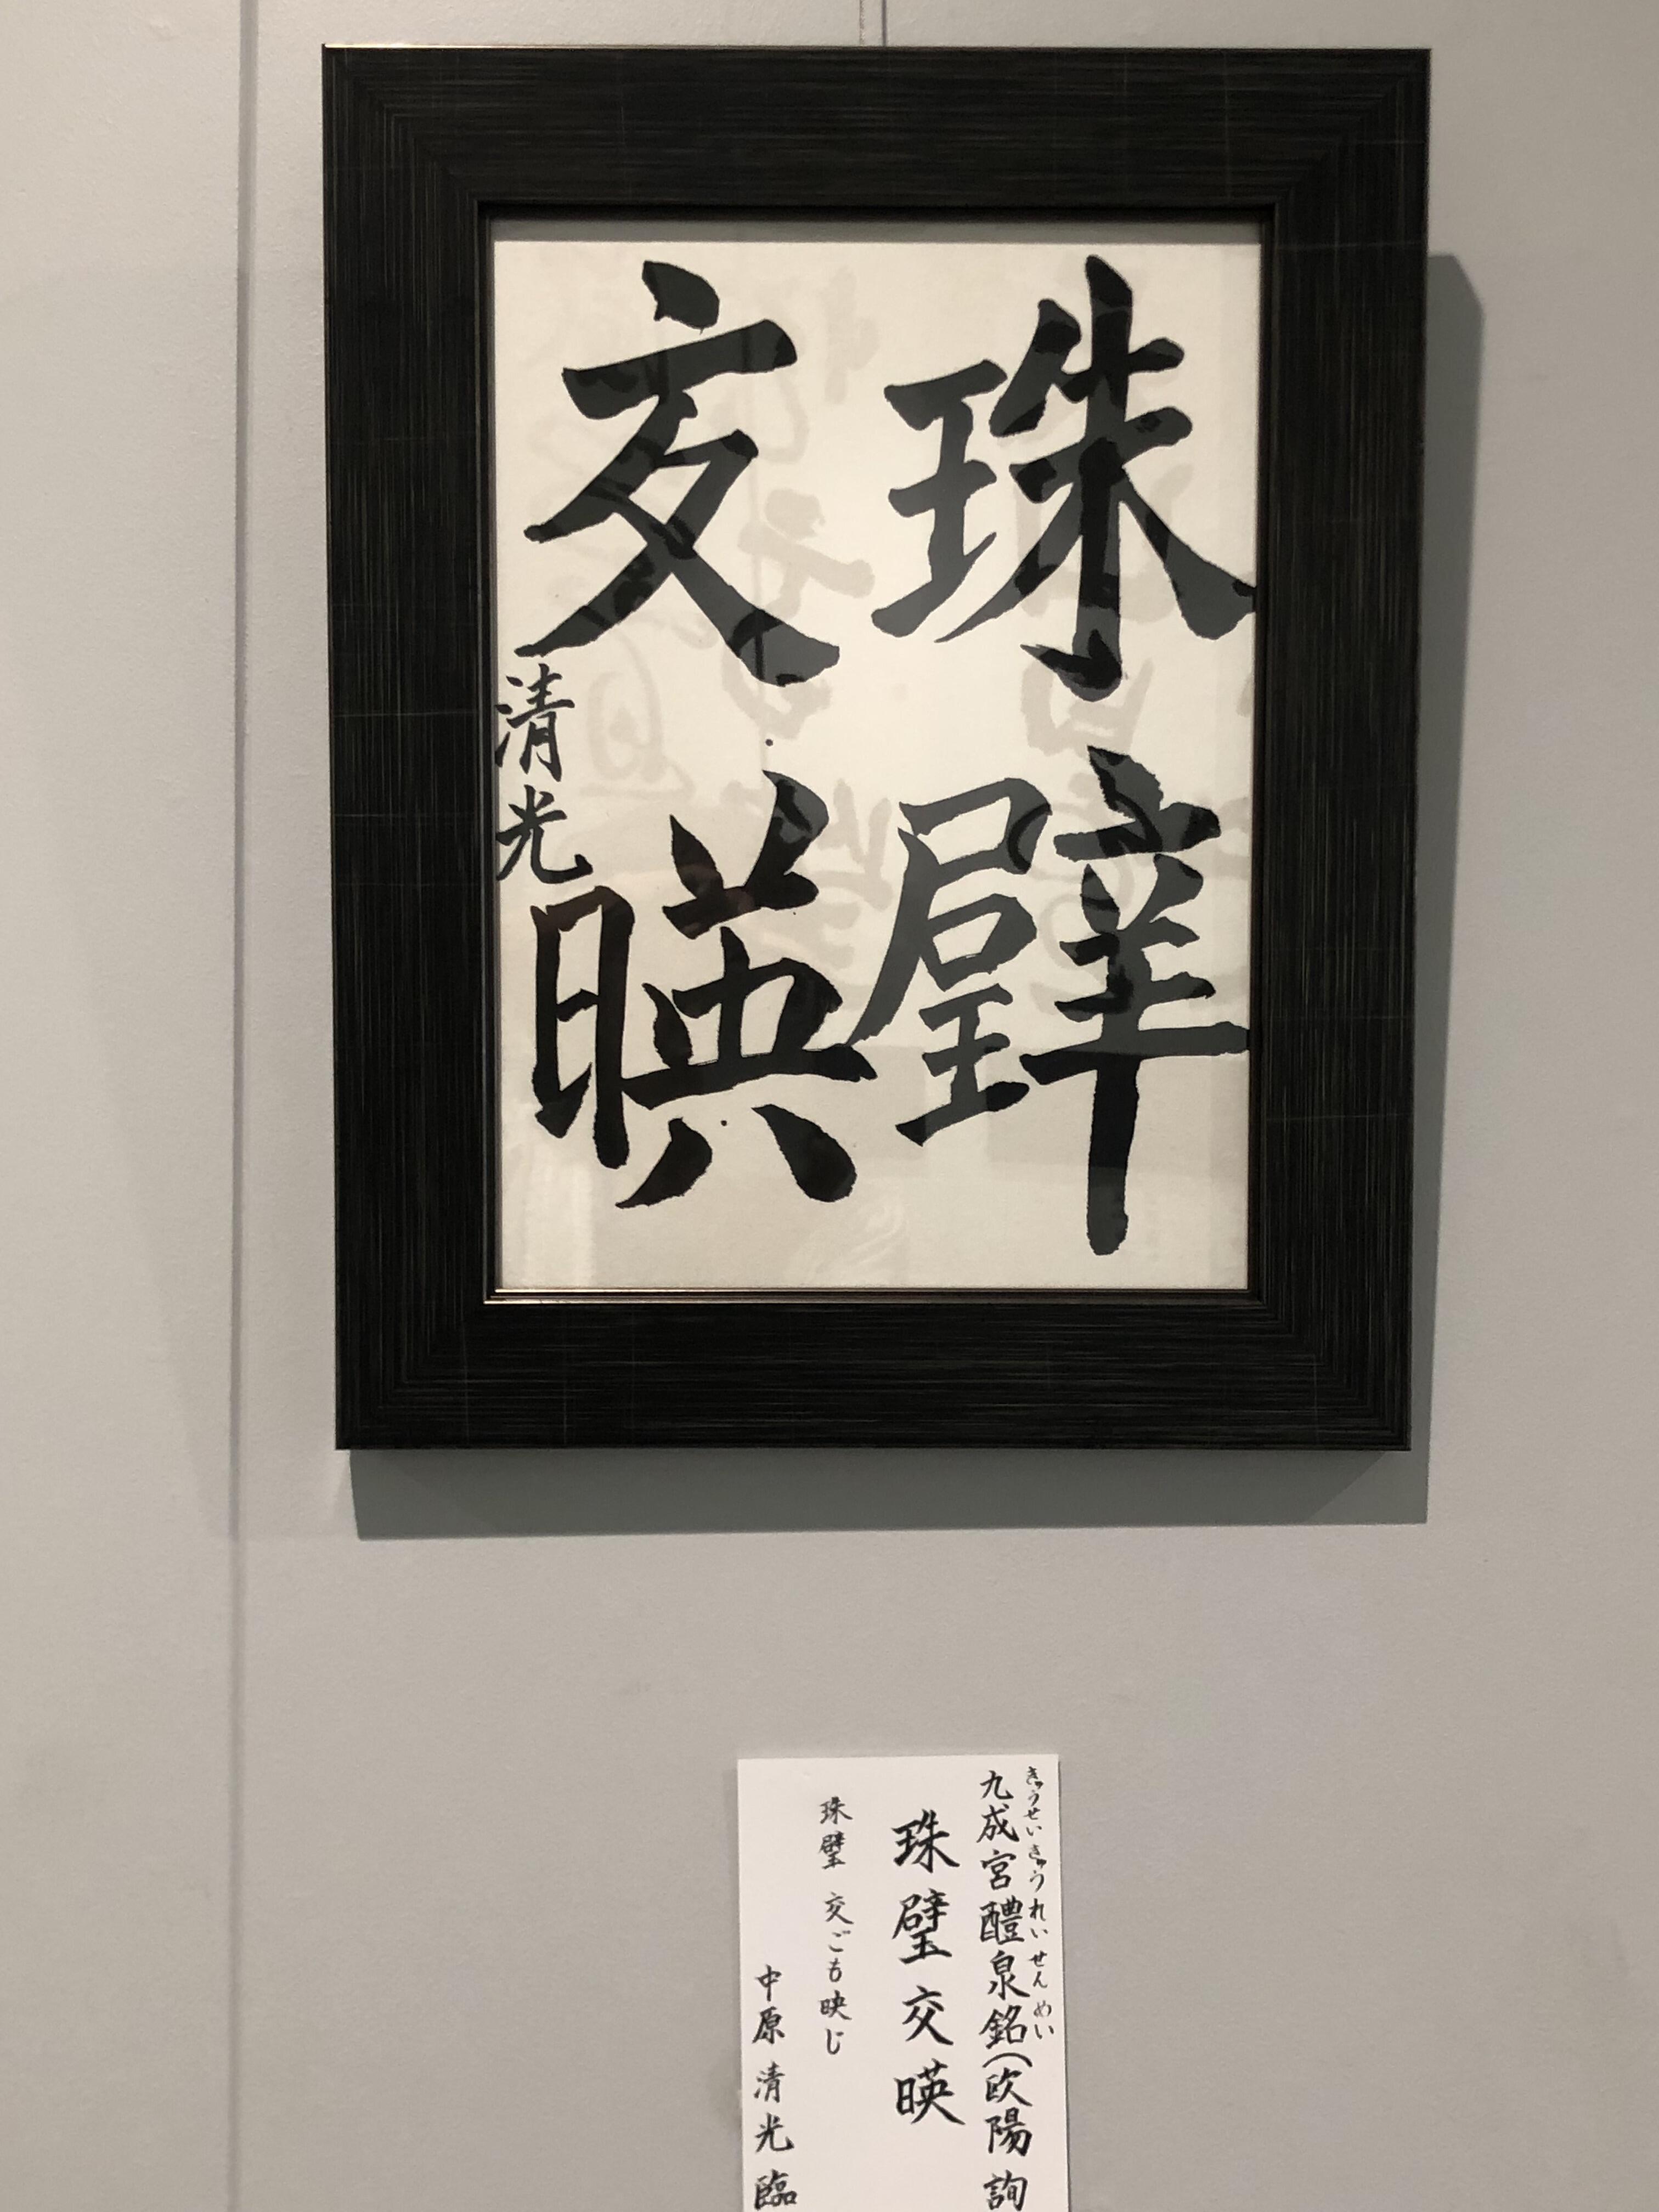 珠璧
交暎
清光
きゅうせいきゅうれいせんめい
九成宮醴泉銘(欧陽詢
珠璧交暎
珠璧 交ごも映じ
中原清光臨